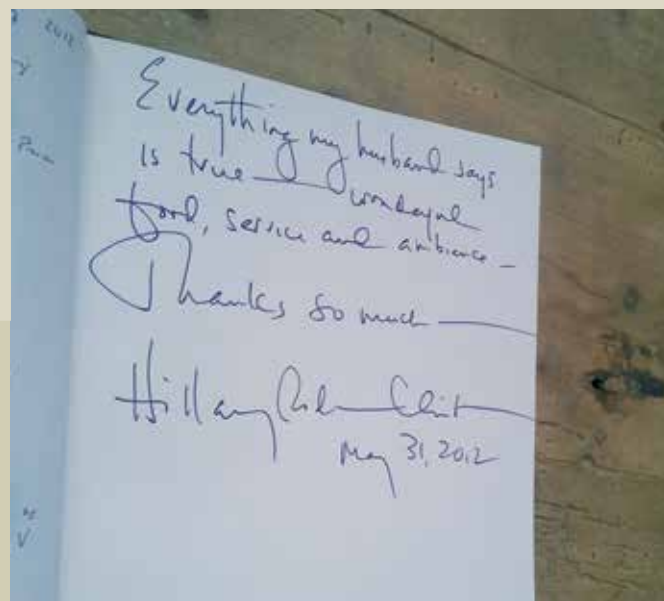 2012
Everything my husband says
is true — wonderful
food, service and ambience –
Thanks so much —
Hillary Rodham Clinton
May 31, 2012